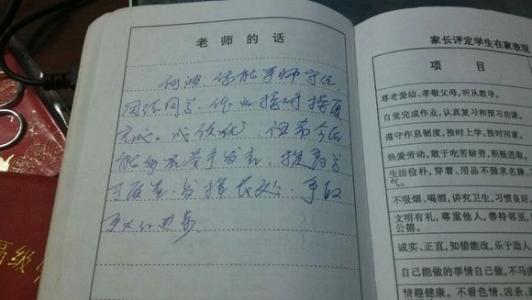 老师的话
你能尊师守纪,
团结同学,作业按时按质
完成。成绩优,但希今后
能多举手发言,提高学
习质量,争取
更大的进步
家长评定学生在家表现
项 目
尊老爱幼、孝敬父母,听从教导。
自觉完成作业,认真复习和预习功课。
遵守作息制度,按时上学、按时回家。
热爱劳动,敢于吃苦耐劳,积极进
生活俭朴,穿着、用品不强求名牌、
气。
不吸烟、喝酒,讲究卫生,习惯良好
文明有礼,尊重他人,善待邻
公德。
诚实、正直,知错能改,乐于助人
自己能做的事情自己做,不马
情趣健康。不看色情、凶杀、
高级